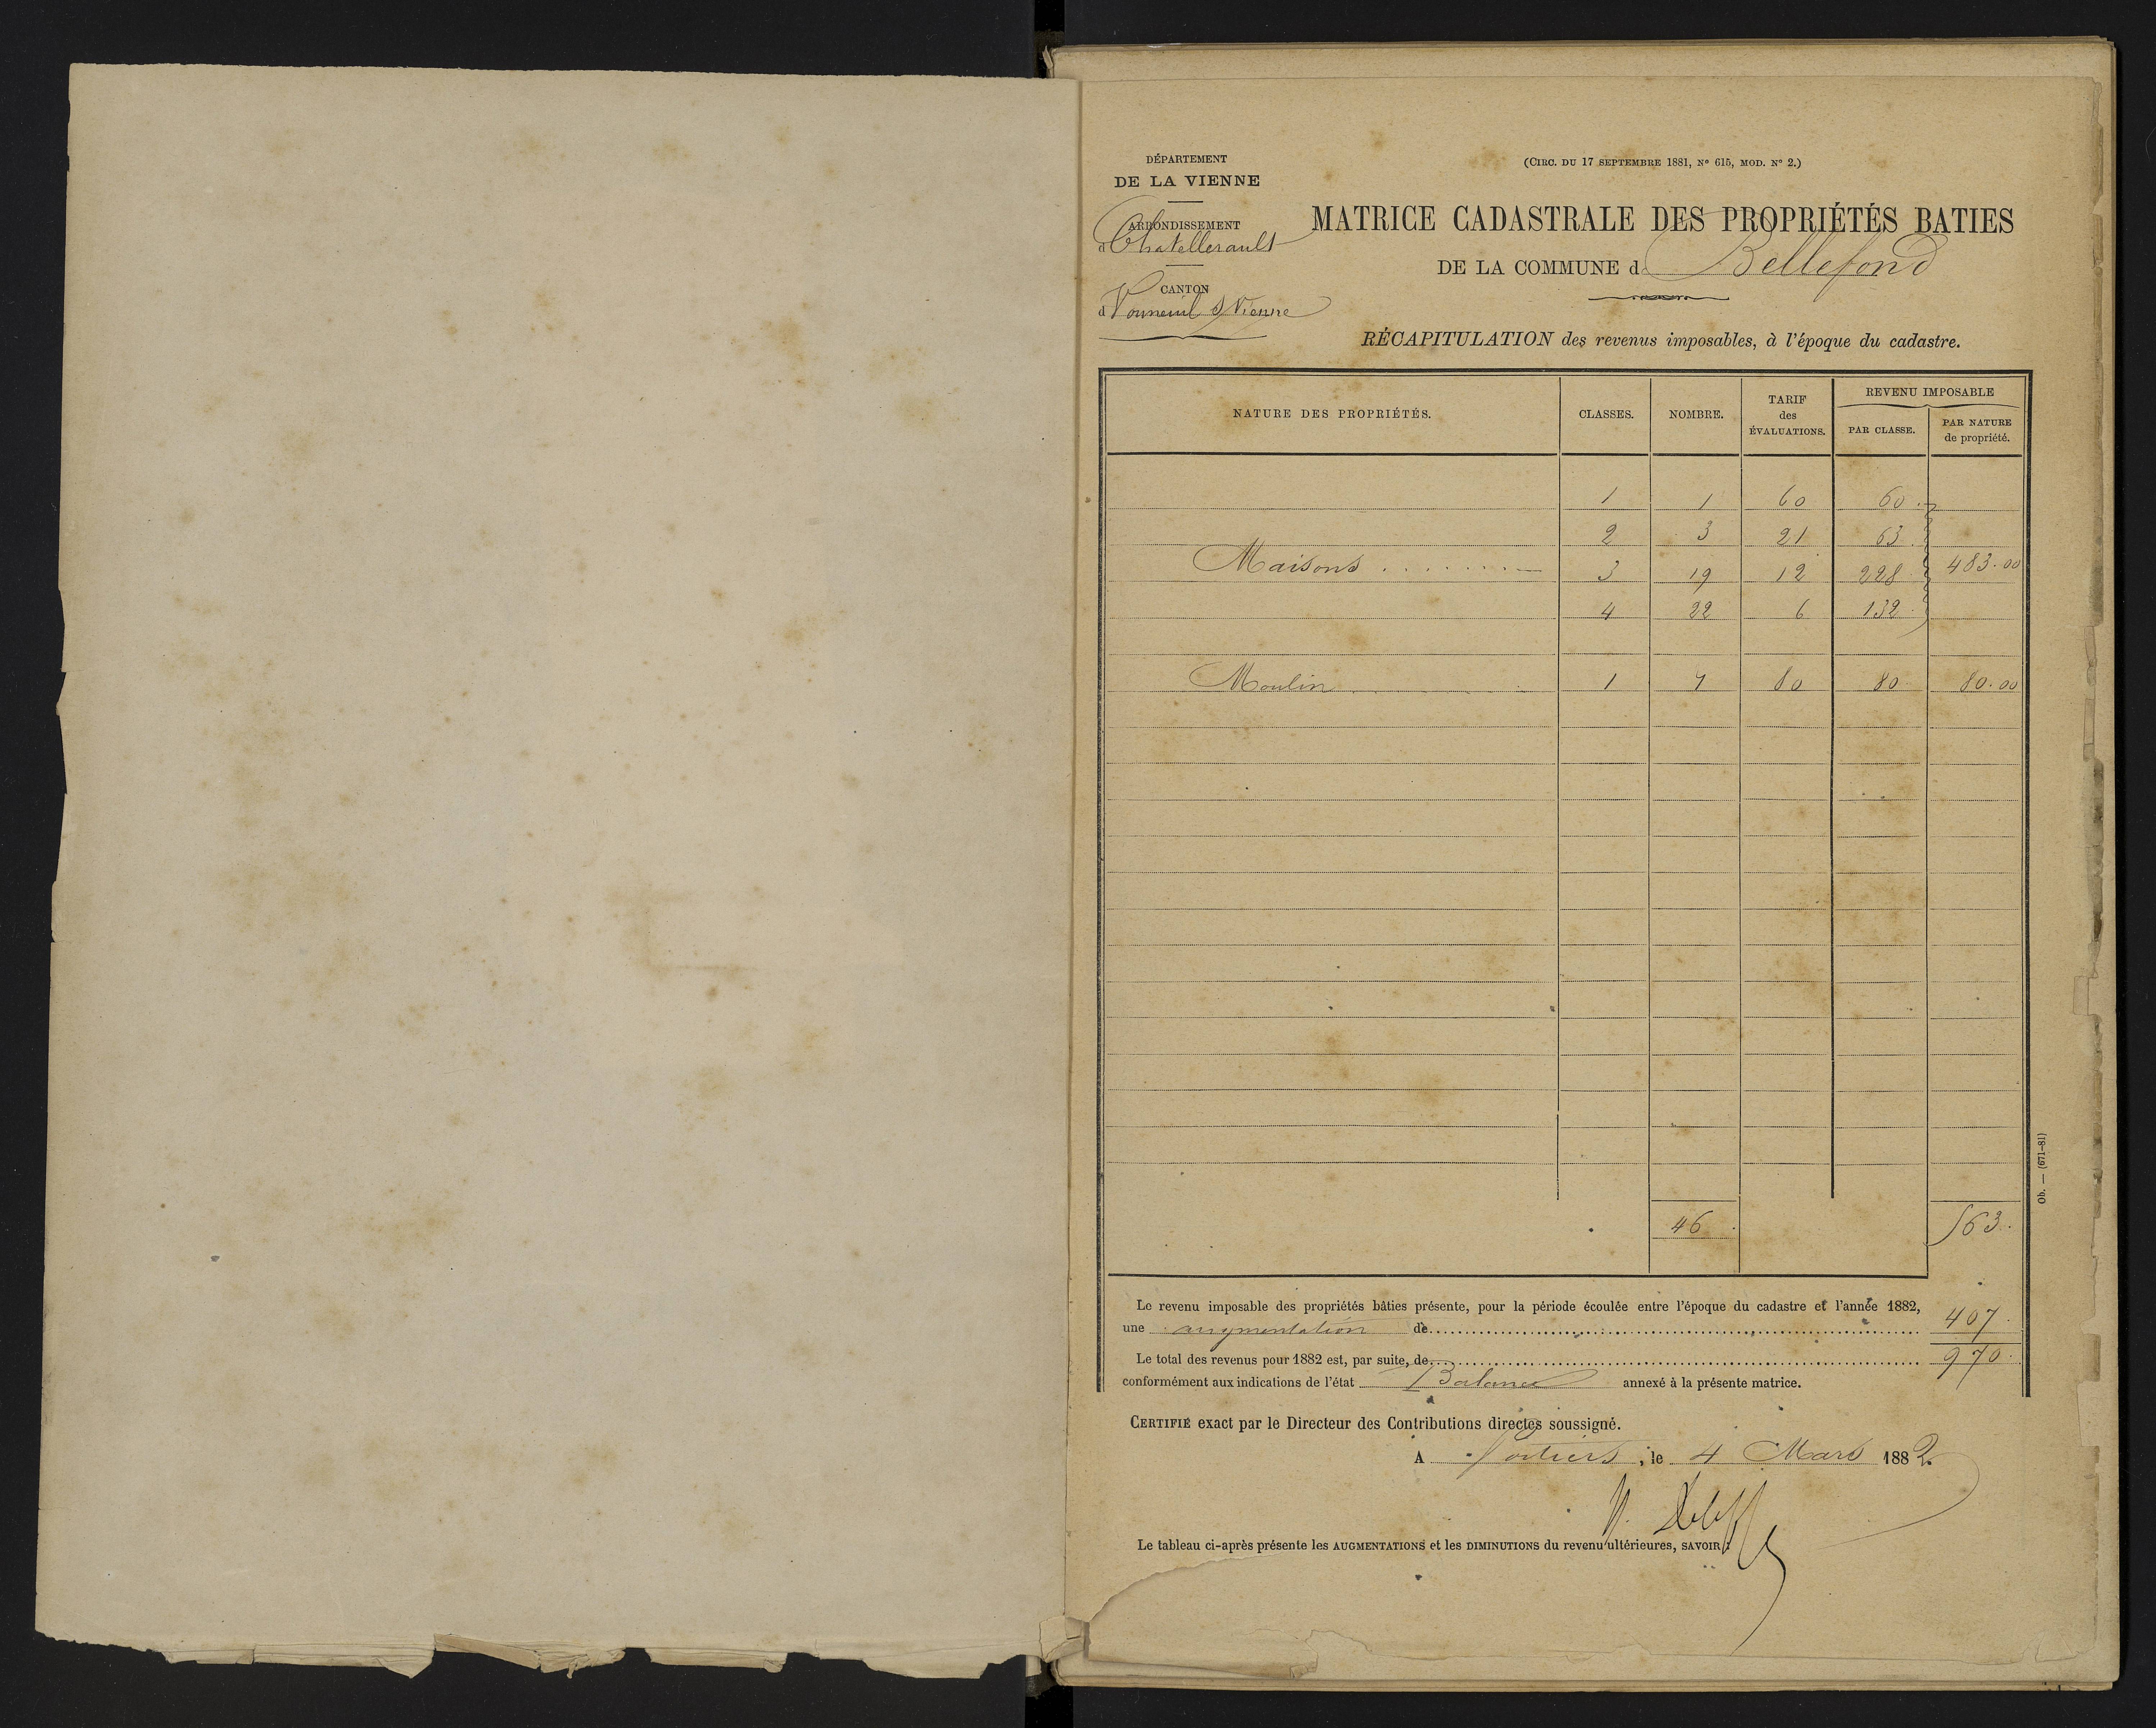 DÉPARTEMENT
DE LA VIENNE
ARRONDISSEMENT
d Chatellerault
CANTON
d Vouneuil s/ Vienne
(CIRC. DU 17 SEPTEMBRE 1881, N° 615, MOD. N° 2.)
MATRICE CADASTRALE DES PROPRIÉTÉS BATIES
DE LA COMMUNE d Bellefond
RÉCAPITULATION des revenus imposables, à l'époque du cadastre.
NATURE DES PROPRIÉTÉS. CLASSES. NOMBRE. TARIF des ÉVALUATIONS. REVENU IMPOSABLE
PAR CLASSE. PAR NATURE de propriété.
1 1 60 60
2 3 21 63
Maisons 3 19 12 228 483.00
4 22 6 132
Moulin 1 1 80 80 80.00
46 563
Le revenu imposable des propriétés bâties présente, pour la période écoulée entre l'époque du cadastre et l'année 1882,
une augmentation de 407
Le total des revenus pour 1882 est, par suite, de 970
conformément aux indications de l'état Balance annexé à la présente matrice.
CERTIFIÉ exact par le Directeur des Contributions directes soussigné.
A Poitiers, le 4 Mars 1882.
Le tableau ci-après présente les AUGMENTATIONS et les DIMINUTIONS du revenu ultérieures, SAVOIR :
Ob. — (671-81)